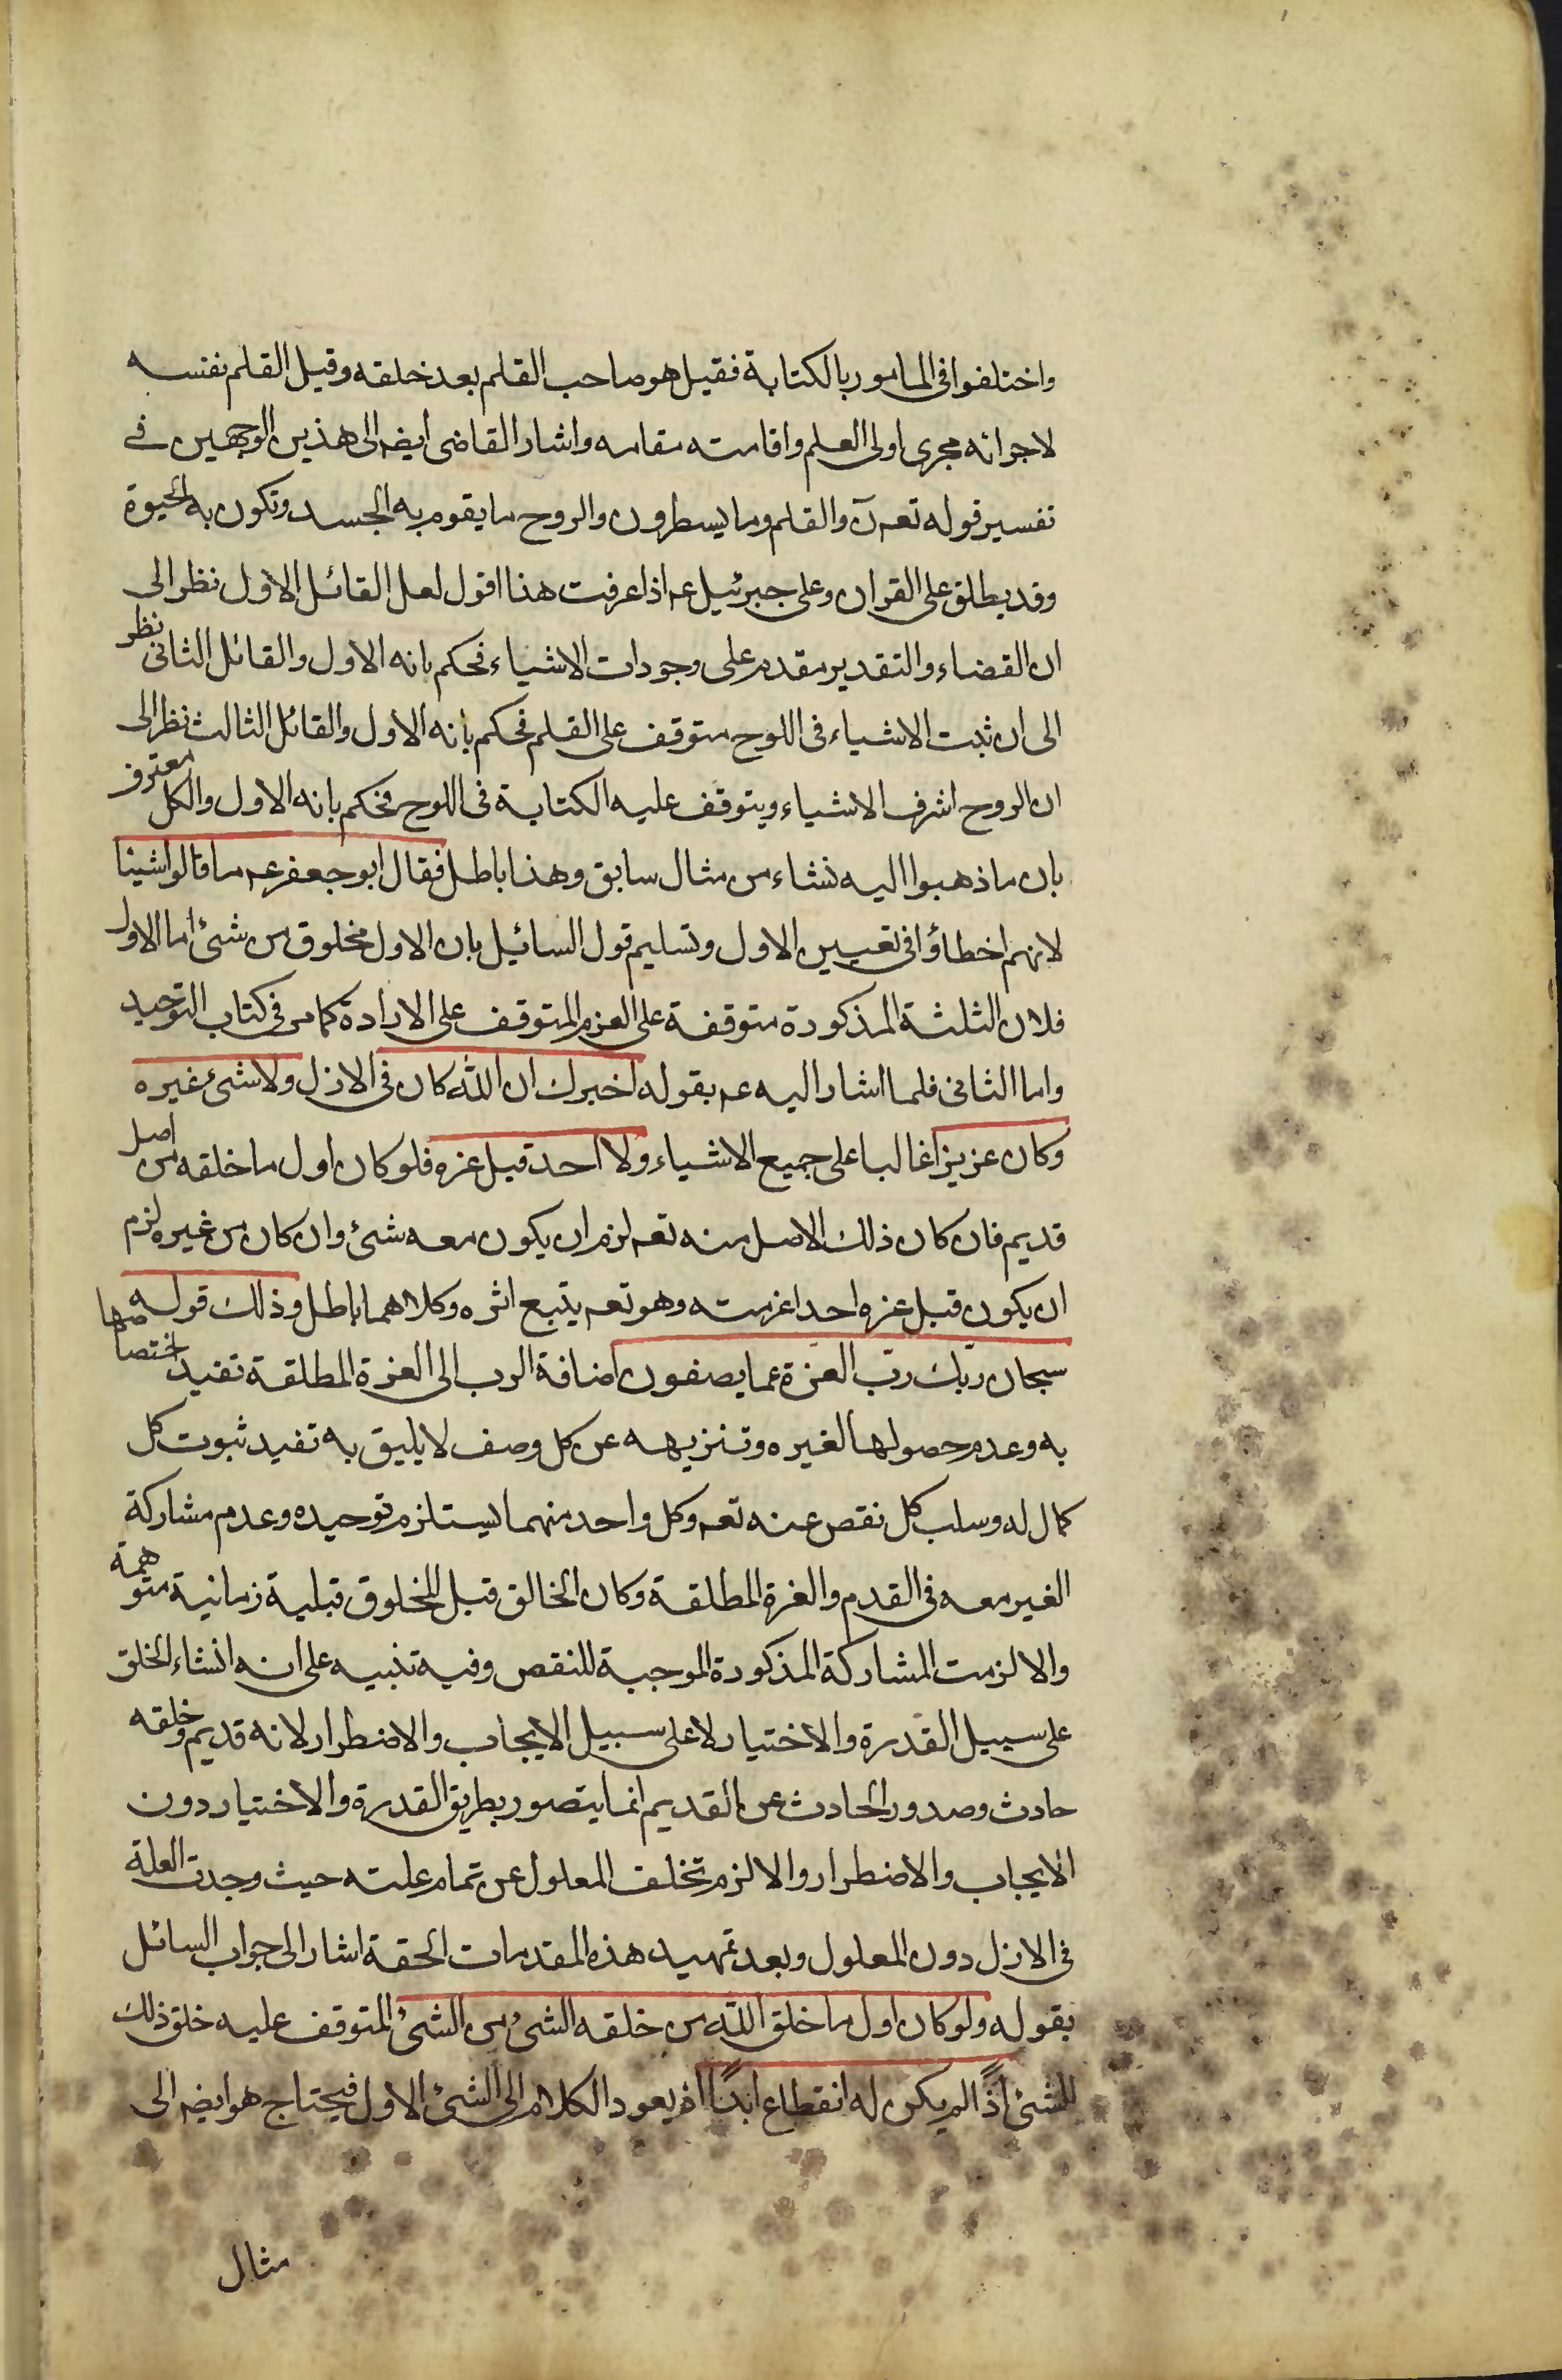 واختلفوا فى المامور بالكتابة فقيل هو صاحب القلم بعد خلقه وقيل القلم نفسه
لاجرائه مجرى اولى العلم واقامته مقامه واشار القاضى ايضه الى هذين الوجهين فى
تفسير قوله تعه ن والقلم وما يسطرون والروح ما يقوم به الجسد وتكون به الحيوة
وقد يطلق على القران وعلى جبرئيل عه اذا عرفت هذا اقول لعل القائل الاول نظر الى
ان القضاء والتقدير مقدم على وجودات الاشياء فحكم بانه الاول والقائل الثانى نظر
الى ان ثبت الاشياء فى اللوح متوقف على القلم فحكم بانه الاول والقائل الثالث نظر الى
ان الروح اشرف الاشياء ويتوقف عليه الكتابة فى اللوح فحكم بانه الاول والكل معترف
بان ما ذهبوا اليه نشاء من مثال سابق وهذا باطل فقال ابو جعفر عه ما قالوا شيئا
لانهم اخطاؤا فى تعيين الاول وتسليم قول السائيل بان الاول مخلوق من شئ اما الاول
فلان الثلثة المذكورة متوقفة على العزم المتوقف على الارادة كما مر فى كتاب التوحيد
واما الثانى فلما اشار اليه عه بقوله اخبرك ان الله كان فى الازل ولا شئ غيره
وكان عزيزا غالبا على جميع الاشياء ولا احد قبل عزه فلو كان اول ما خلقه من اصل
قديم فان كان ذلك الاصل منه تعه لزم ان يكون معه شئ وان كان من غيره لزم
ان يكون قبل عزه احدا عزمته وهو تعه يتبع اثره وكلاهما باطل وذلك قوله
سبحان ربك رب العزة عما يصفون اضافة الرب الى العزة المطلقة تفيد اختصاصها
به وعدم حصولها لغيره وتنزيهه عن كل وصف لا يليق به تفيد ثبوت كل
كمال له وسلب كل نقص عنه تعه وكل واحد منهما يستلزم توحيده وعدم مشاركة
الغير معه فى القدم والعزة المطلقة وكان الخالق قبل المخلوق قبلية زمانية متوهمة
والا لزمت المشاركة المذكورة الموجبة للنقص وفيه تنبيه على انه انشاء الخلق
على سبيل القدرة والاختيار لا على سبيل الايجاب والاضطرار لانه قديم وخلقه
حادث وصدور الحادث عن القديم انما يتصور بطريق القدرة والاختيار دون
الايجاب والاضطرار والا لزم تخلف المعلول عن تمام علته حيث وجدت العلة
فى الازل دون المعلول وبعد تمهيد هذه المقدمات الحقة اشار الى جواب السائل
بقوله ولو كان اول ما خلق الله من خلقه الشئ من الشئ المتوقف عليه خلق ذلك
الشئ اذًا لم يكن له انقطاع ابدًا اذ يعود الكلام الى الشئ الاول فيحتاج هو ايضه الى
مثال